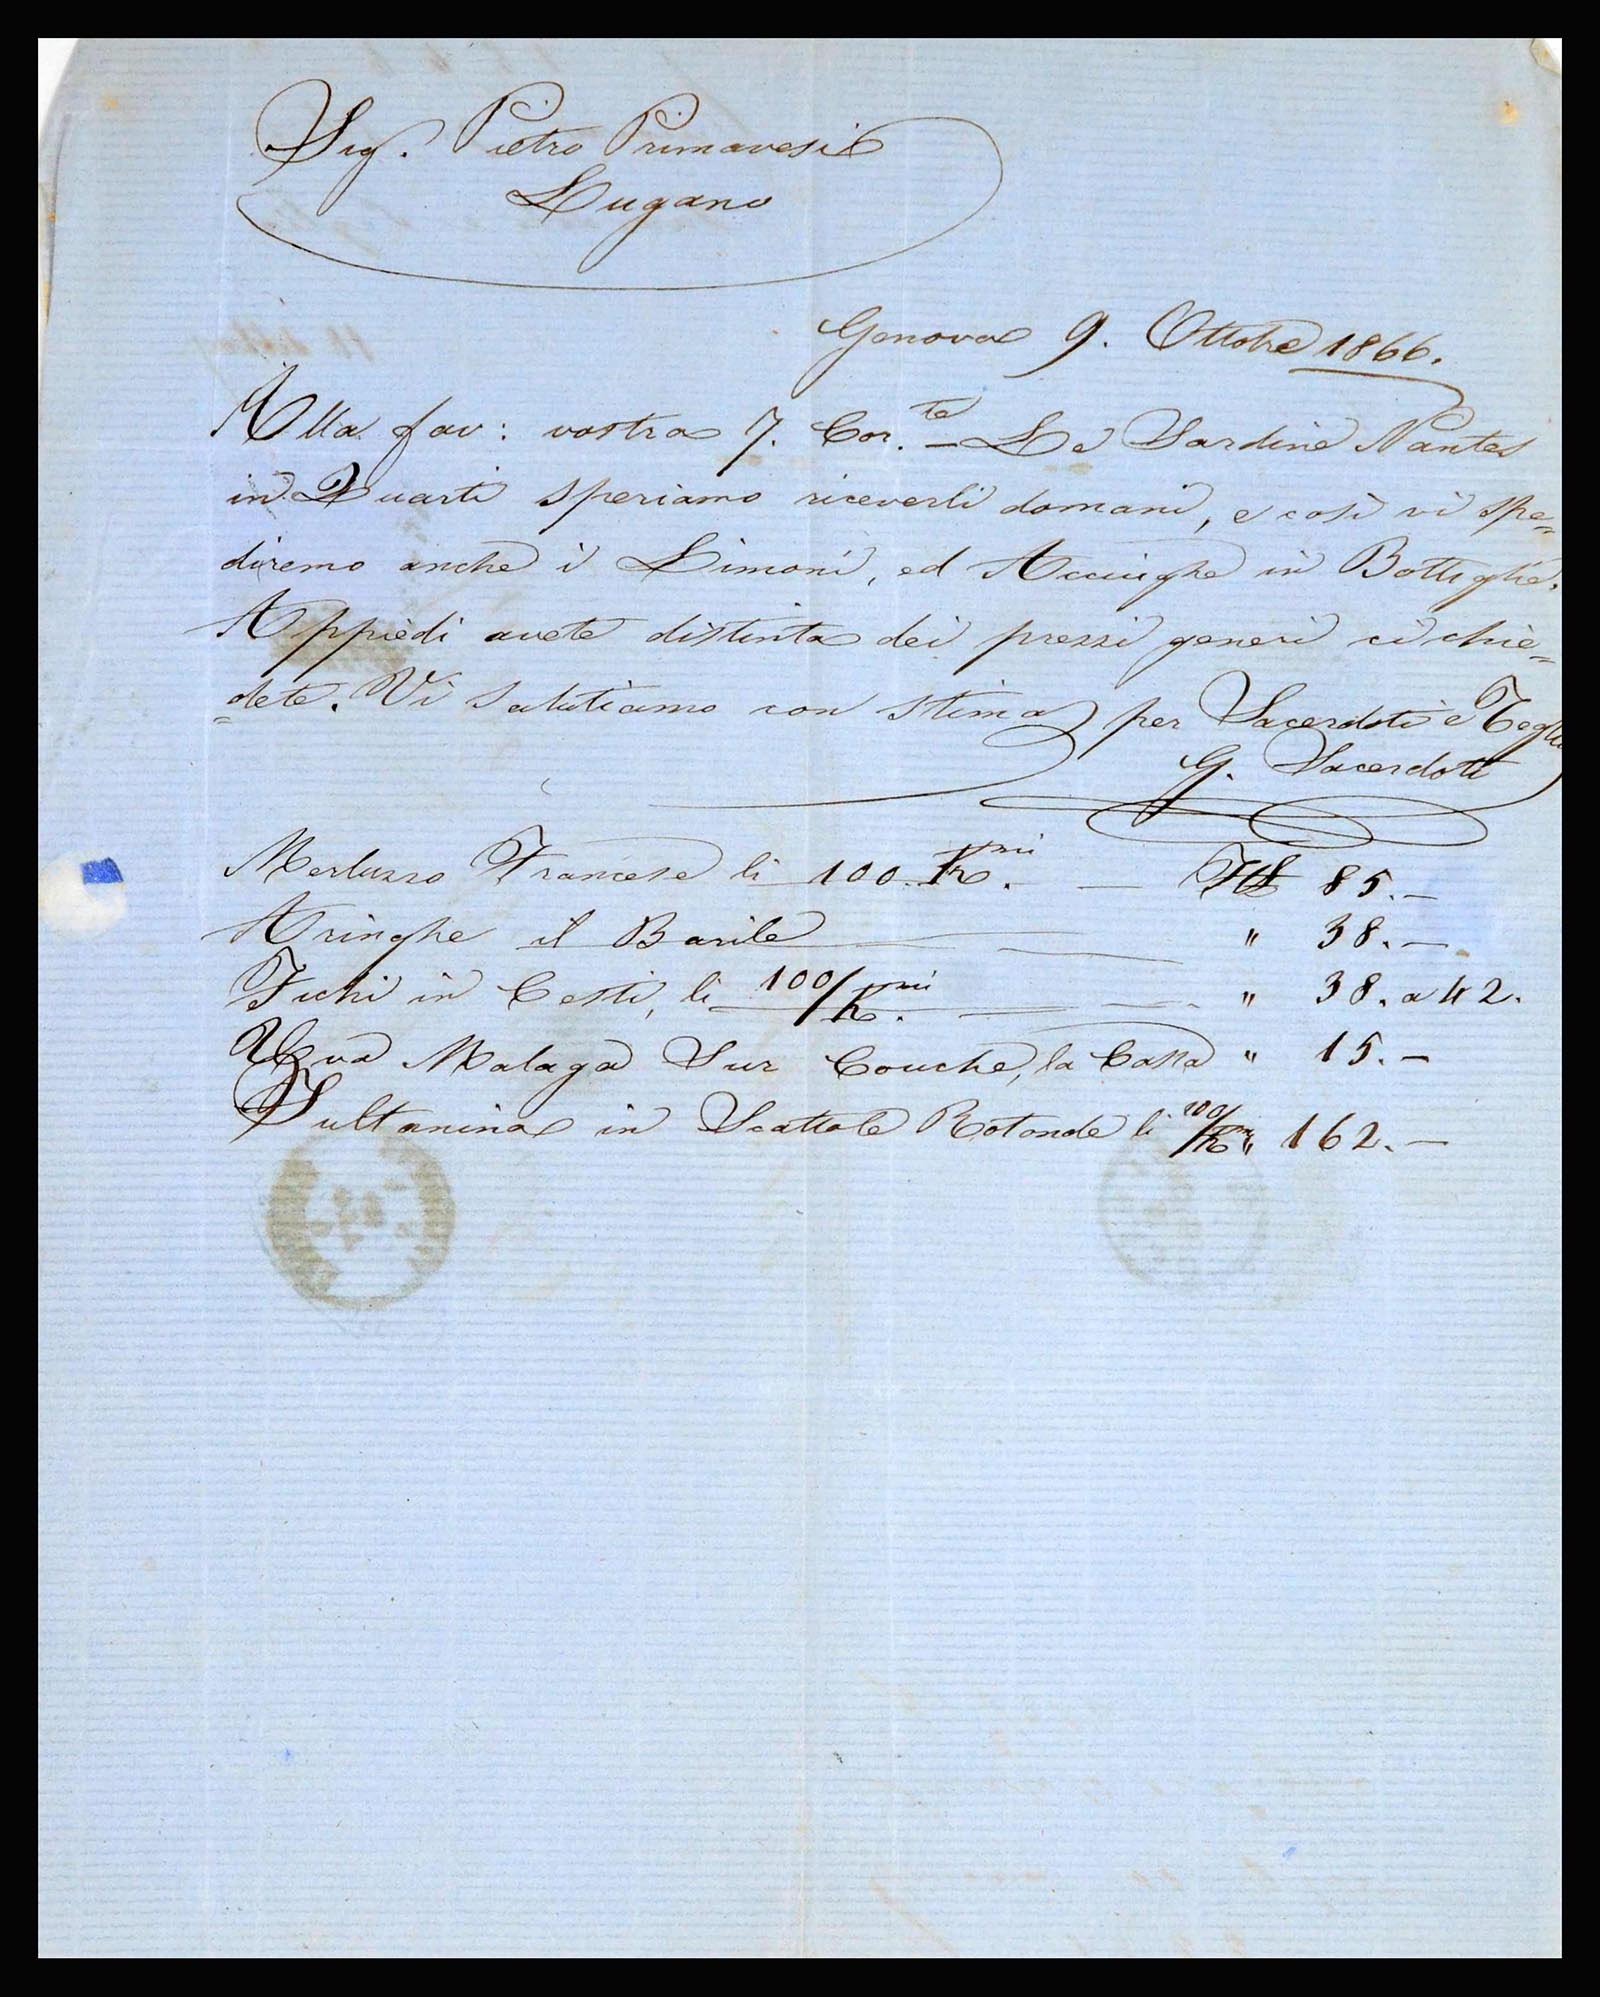 Sig. Pietro Primavesi
Lugano
Genova 9. Ottobre 1866.
Alla fav: vostra 7. Cor.te — Le Sardine Nantes
in Quarti speriamo riceverli domani, e così vi spe=
diremo anche i Limoni, ed Acciughe in Bottiglie.
Appiedi avete distinta dei prezzi generi ci chie=
=dete. Vi salutiamo con stima per Sacerdoti e Teglio
G. Sacerdoti
Merluzzo Francese li 100. Kmi. — 85.—
Aringhe il Barile — " 38.—
Fichi in Cesti, li 100/Kmi. — " 38. a 42.
Uva Malaga Sur Couche, la Cassa " 15.—
Sultanina in Scattole Rotonde li 100/Kmi " 162.—